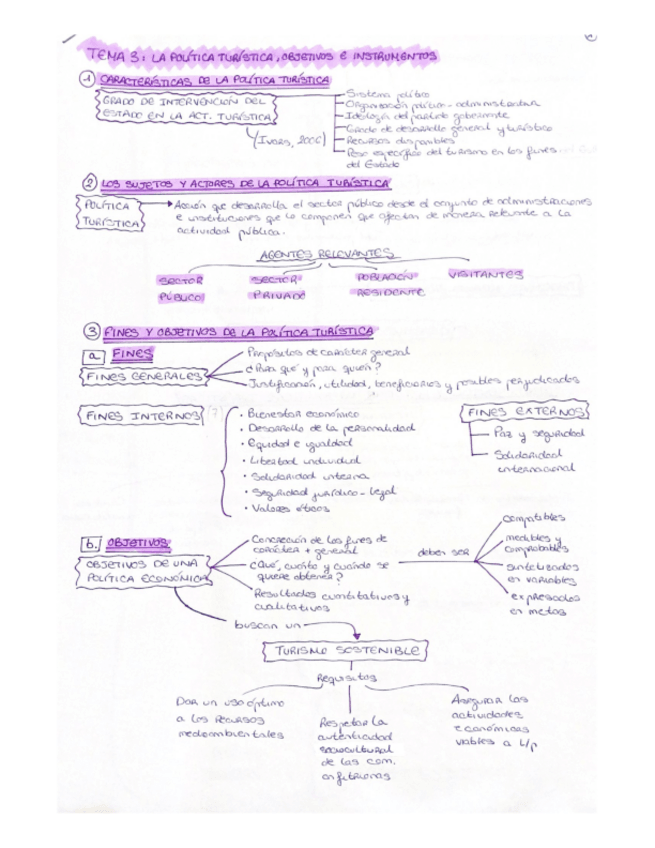 TEMA 3: LA POLÍTICA TURÍSTICA, OBJETIVOS E INSTRUMENTOS
1 CARACTERÍSTICAS DE LA POLÍTICA TURÍSTICA
GRADO DE INTERVENCIÓN DEL
ESTADO EN LA ACT. TURÍSTICA
(IVARS, 2000)
Sistema político
Organización político-administrativa
Ideología del partido gobernante
Grado de desarrollo general y turístico
Recursos disponibles
Peso específico del turismo en los fines
del Estado
2 LOS SUJETOS Y ACTORES DE LA POLÍTICA TURÍSTICA
POLÍTICA
TURÍSTICA
Acción que desarrolla el sector público desde el conjunto de administraciones
e instituciones que lo componen que afectan de manera relevante a la
actividad pública.
AGENTES RELEVANTES
SECTOR
PÚBLICO
SECTOR
PRIVADO
POBLACIÓN
RESIDENTE
VISITANTES
3 FINES Y OBJETIVOS DE LA POLÍTICA TURÍSTICA
a. FINES
FINES GENERALES
Propósitos de carácter general
¿Para qué y para quien?
Justificación, utilidad, beneficiarios y posibles perjudicados
FINES INTERNOS (7)
• Bienestar económico
• Desarrollo de la personalidad
• Equidad e igualdad
• Libertad individual
• Solidaridad interna
• Seguridad jurídico-legal
• Valores éticos
FINES EXTERNOS
Paz y seguridad
Solidaridad
internacional
b. OBJETIVOS
OBJETIVOS DE UNA
POLÍTICA ECONÓMICA
Concreción de los fines de
carácter + general
¿Qué, cuánto y cuándo se
quiere obtener?
Resultados cuantitativos y
cualitativos
deben ser
compatibles
medibles y
comprobables
sintetizados
en variables
expresados
en metas
buscan un
TURISMO SOSTENIBLE
Requisitos
Dar un uso óptimo
a los recursos
medioambientales
Respetar la
autenticidad
sociocultural
de las com.
anfitrionas
Asegurar las
actividades
económicas
viables a L/p